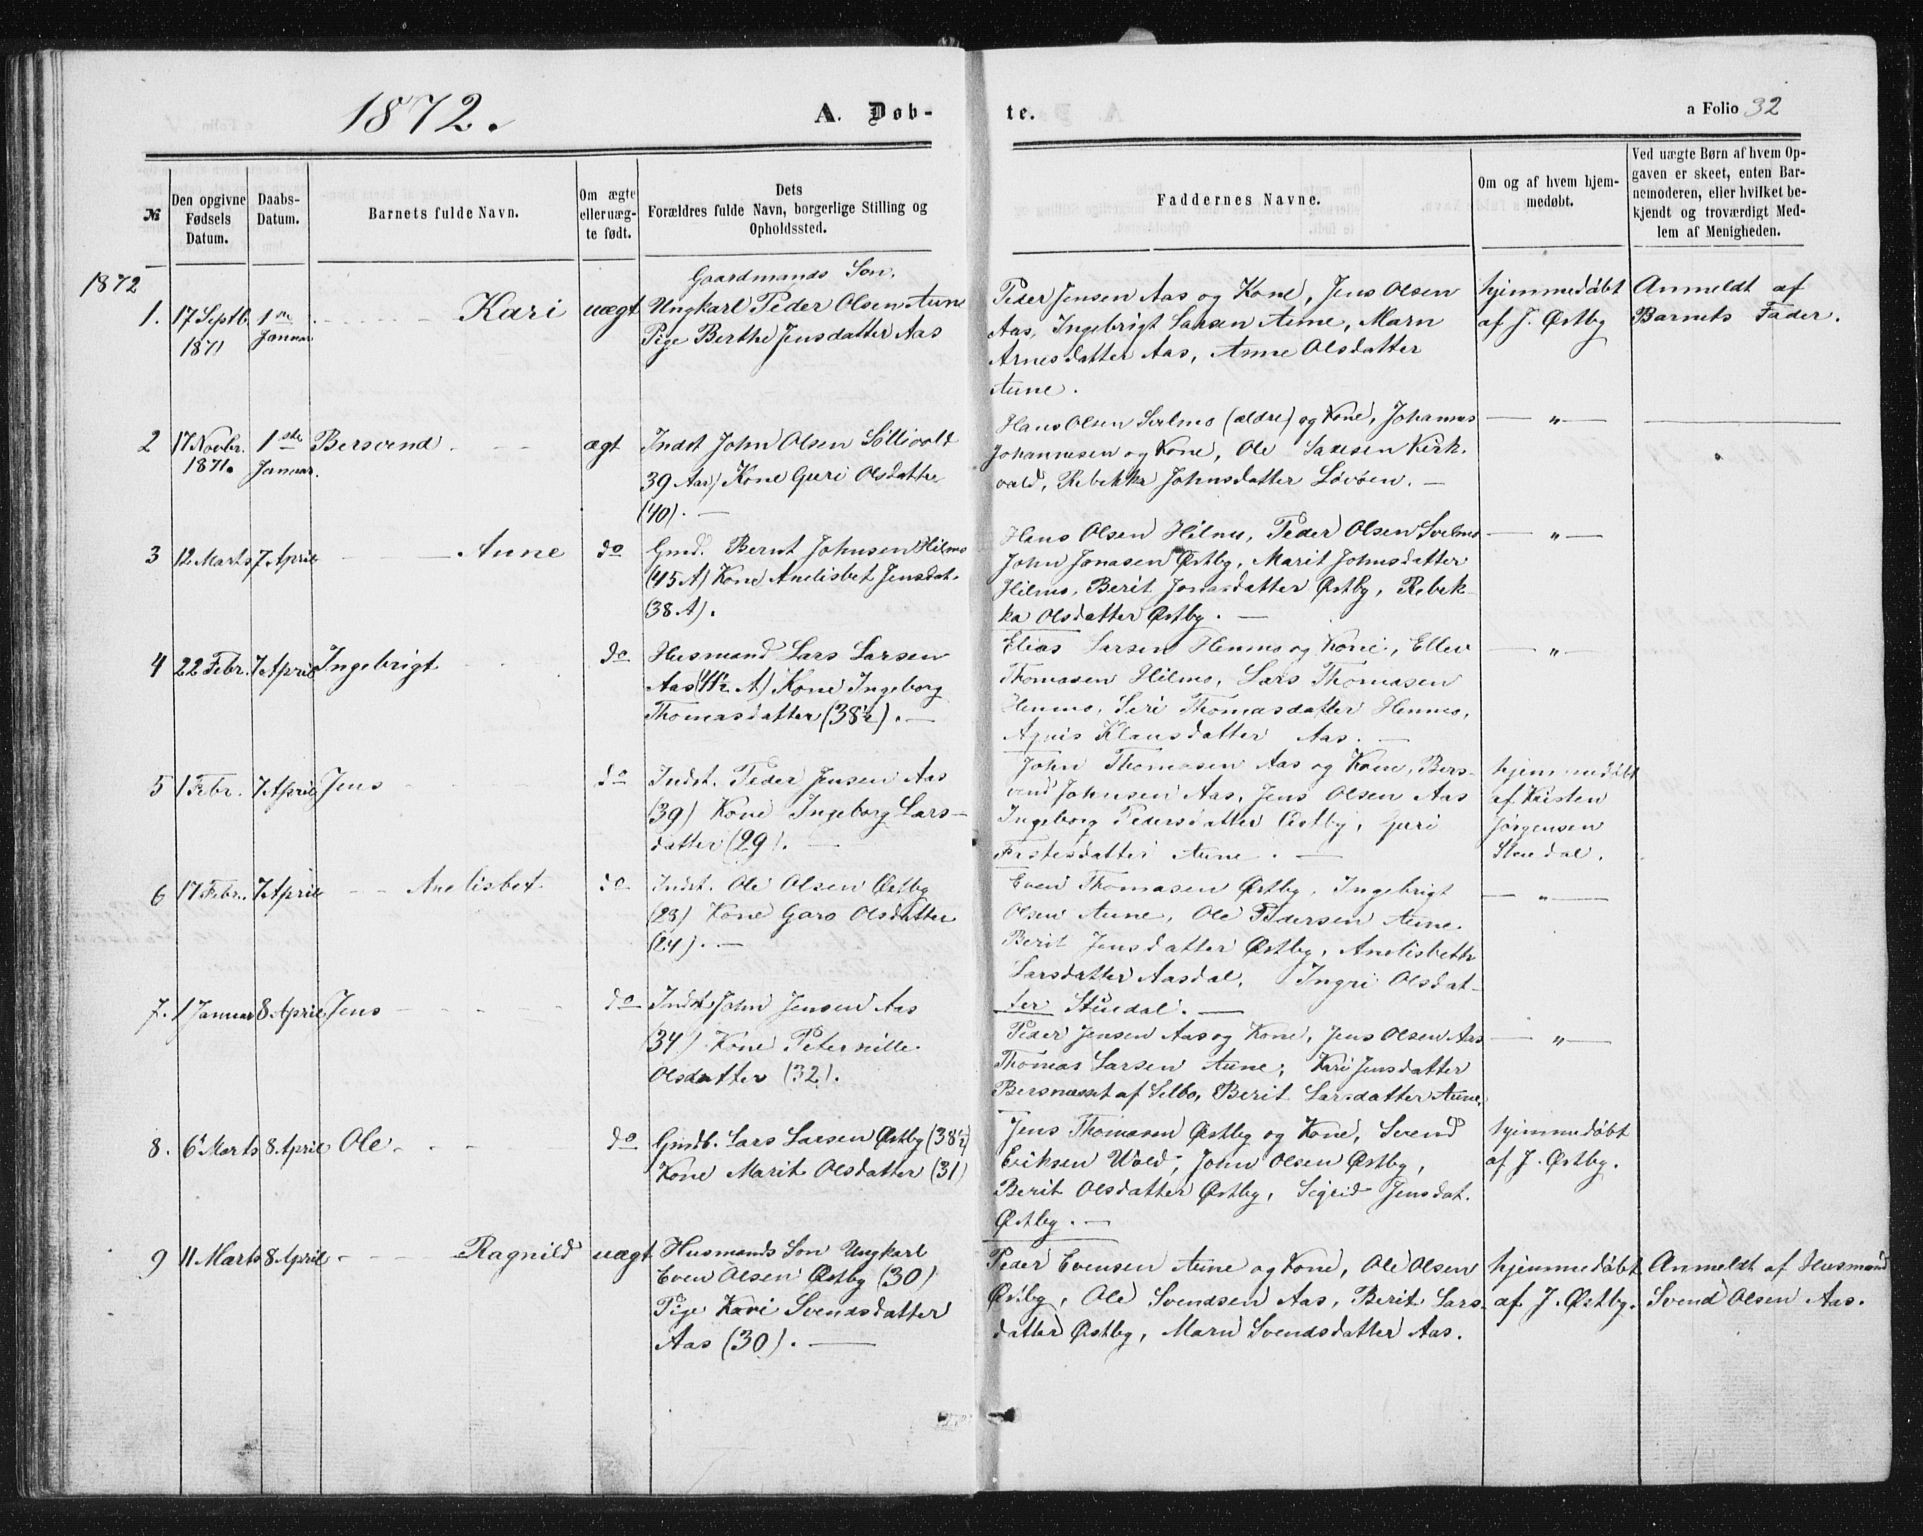 1872.
A. Døb-
te.
a Folio 32
№
Den opgivne Fødsels Datum.
Daabs-Datum.
Barnets fulde Navn.
Om ægte eller uæg-te født.
Dets Forældres fulde Navn, borgerlige Stilling og Opholdssted.
Faddernes Navne.
Om og af hvem hjem-medøbt.
Ved uægte Børn af hvem Op-gaven er skeet, enten Bar-nemoderen, eller hvilket be-kjendt og troværdigt Med-lem af Menigheden.
1872
1. 17 Septb. 1871
1ste Januar
Kari
uægt
Gaardmands Søn.
Ungkarl Peder Olsen Aune
Pige Berthe Jensdatter Aas
Peder Jensen Aas og Kone, Jens Olsen
Aas, Ingebrigt Larsen Aune, Marn
Arnesdatter Aas, Anne Olsdatter
Aune.
hjemmedøbt
af J. Østby
Anmeldt af
Barnets Fader.
2 17 Novbr. 1871.
1ste Januar.
Bersvend
ægt
Indst John Olsen
39 Aar) Kone Guri Olsdatter
(40). —
Hans Olsen Svelmo (ældre) og Kone, Johannes
Johannesen og Kone, Ole Kirk-
vold, Rebekka Johnsdatter Løvøen. —
— „ —
3 12 Marts 7 April
Anne
do
Gmd. Bernt Johnsen Hilmo
(45 A) Kone Anelisbet Jensdat.
(38 A).
Hans Olsen Hilmo, Peder Olsen Svelmo
John Jonasen Østby, Marit Johnsdatter
Hilmo, Berit Jonasdatter Østby, Rebek-
ka Olsdatter Østby. —
— „ —
4 22 Febr. 7 April
Ingebrigt
do
Husmand Lars Larsen
Aas (41½ A) Kone Ingeborg
Thomasdatter (38½). —
Elias Larsen Henmo og Kone, Ellev
Thomasen Hilmo, Lars Thomasen
Henmo, Seri Thomasdatter Henmo,
Agnis Klausdatter Aas. —
— „ —
5 1 Febr. 7 April
Jens
do
Indst. Peder Jensen Aas
(39) Kone Ingeborg Lars-
datter (29). —
John Thomasen Aas og Kone, Bers-
vend Johnsen Aas, Jens Olsen Aas
Ingeborg Pedersdatter Østby, Guri
Estensdatter Aune. —
hjemmedøbt
af Kristen
Jørgensen
Stuedal.
6 17 Febr. 7 April
Anelisbet
do
Indst. Ole Olsen Østby
(23) Kone Goro Olsdatter
(24). —
Even Thomasen Østby, Ingebrigt
Olsen Aune, Ole Pedersen Aune.
Berit Jensdatter Østby, Anelisbeth
Larsdatter Aasdal, Ingri Olsdat-
ter Stuedal. —
— „ —
7. 1 Januar 8 April
Jens
do
Indst. John Jensen Aas
(34) Kone Peternille
Olsdatter (32).
Peder Jensen Aas og Kone, Jens Olsen Aas
Thomas Larsen Aune, Kari Jensdatter
Bersnæsset af Selbo, Berit Larsdatter Aune.
— „ —
8. 6 Marts 8 April
Ole
do
Gmdb. Lars Larsen Østby (38½)
Kone Marit Olsdatter (31)
Jens Thomasen Østby og Kone, Svend
Eriksen Wold, John Olsen Østby,
Berit Olsdatter Østby, Sigrid Jensdat.
Østby. —
hjemmedøbt
af J. Østby.
9 11 Marts 8 April
Ragnild
uægt
Husmands Søn Ungkarl
Even Olsen Østby (30)
Pige Kari Svendsdatter
Aas (30). —
Peder Evensen Aune og Kone, Ole Olsen
Østby, Ole Svendsen Aas, Berit Lars-
datter Østby, Marn Svendsdatter Aas.
hjemmedøbt
af J. Østby.
Anmeldt af Husmand
Svend Olsen Aas.